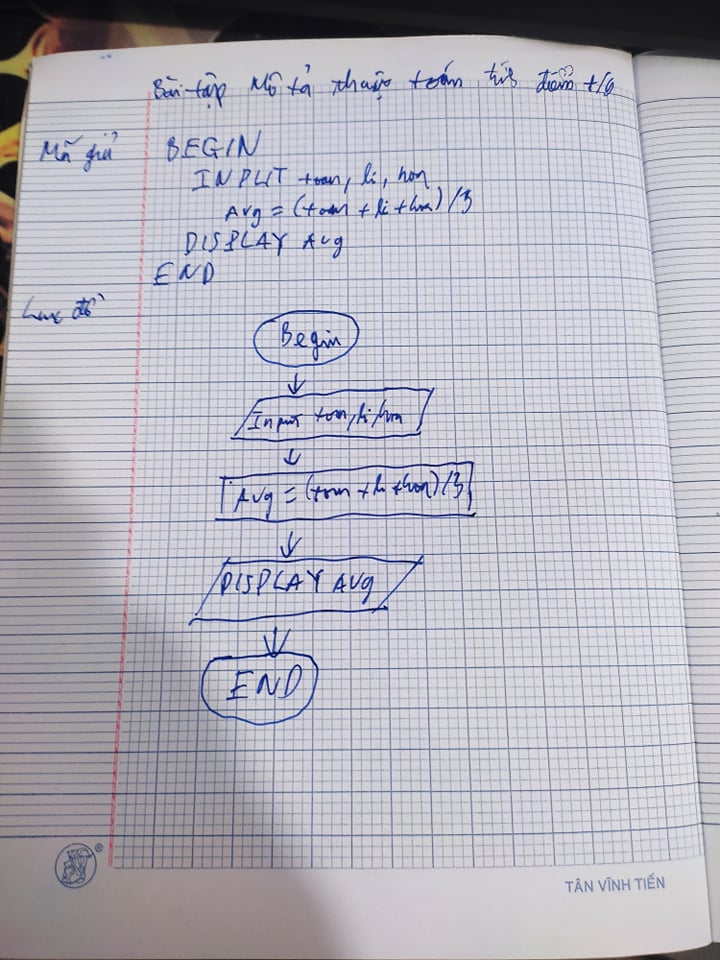 Bài tập Mô tả thuật toán tính điểm t/b
Mã giả
BEGIN
INPUT toan, li, hoa
Avg = (toan + li + hoa) / 3
DISPLAY Avg
END
Lưu đồ
Begin
Input toan, li, hoa
Avg = (toan + li + hoa) / 3
DISPLAY Avg
END
®
TÂN VĨNH TIẾN